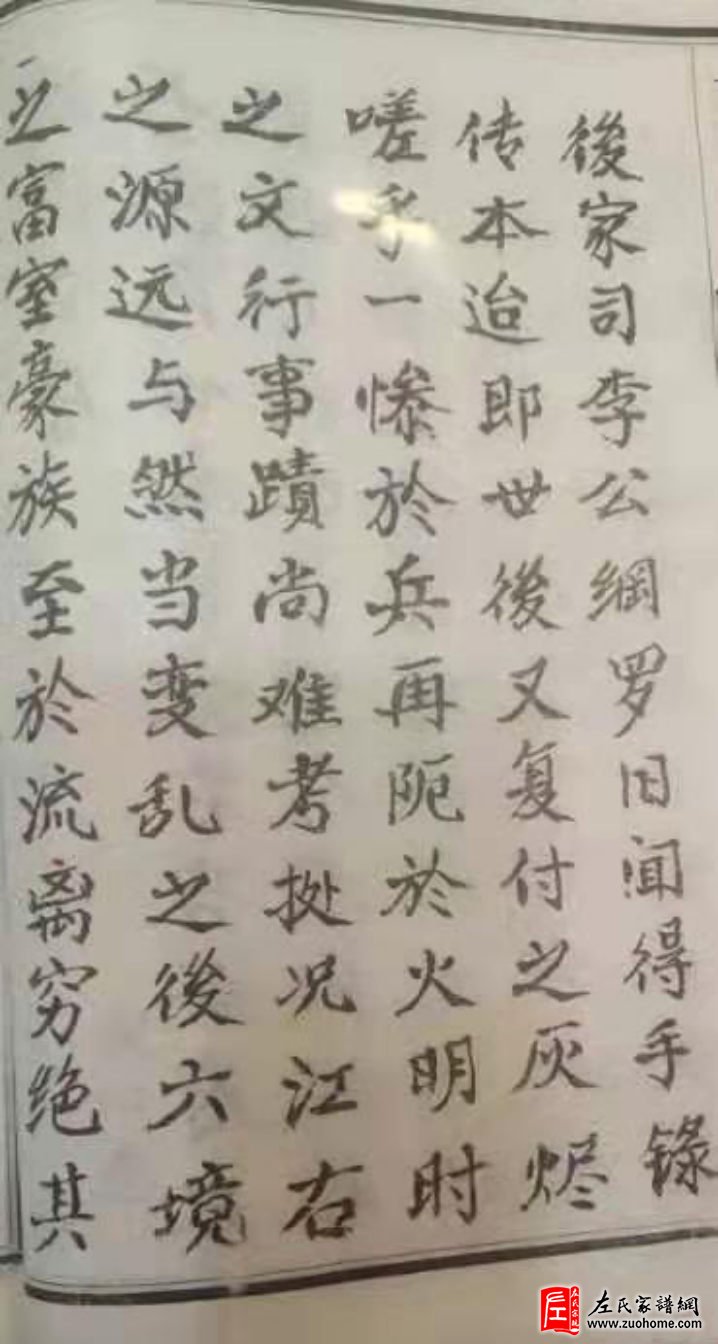 後家司李公綱罗旧闻得手録
传本迨即世後又复付之灰烬
嗟乎一惨於兵再阨於火明时
之文行事蹟尚难考拠况江右
之源远与然当变乱之後六境
之富室豪族至於流离穷绝其
左氏家譜網
www.zuohome.com